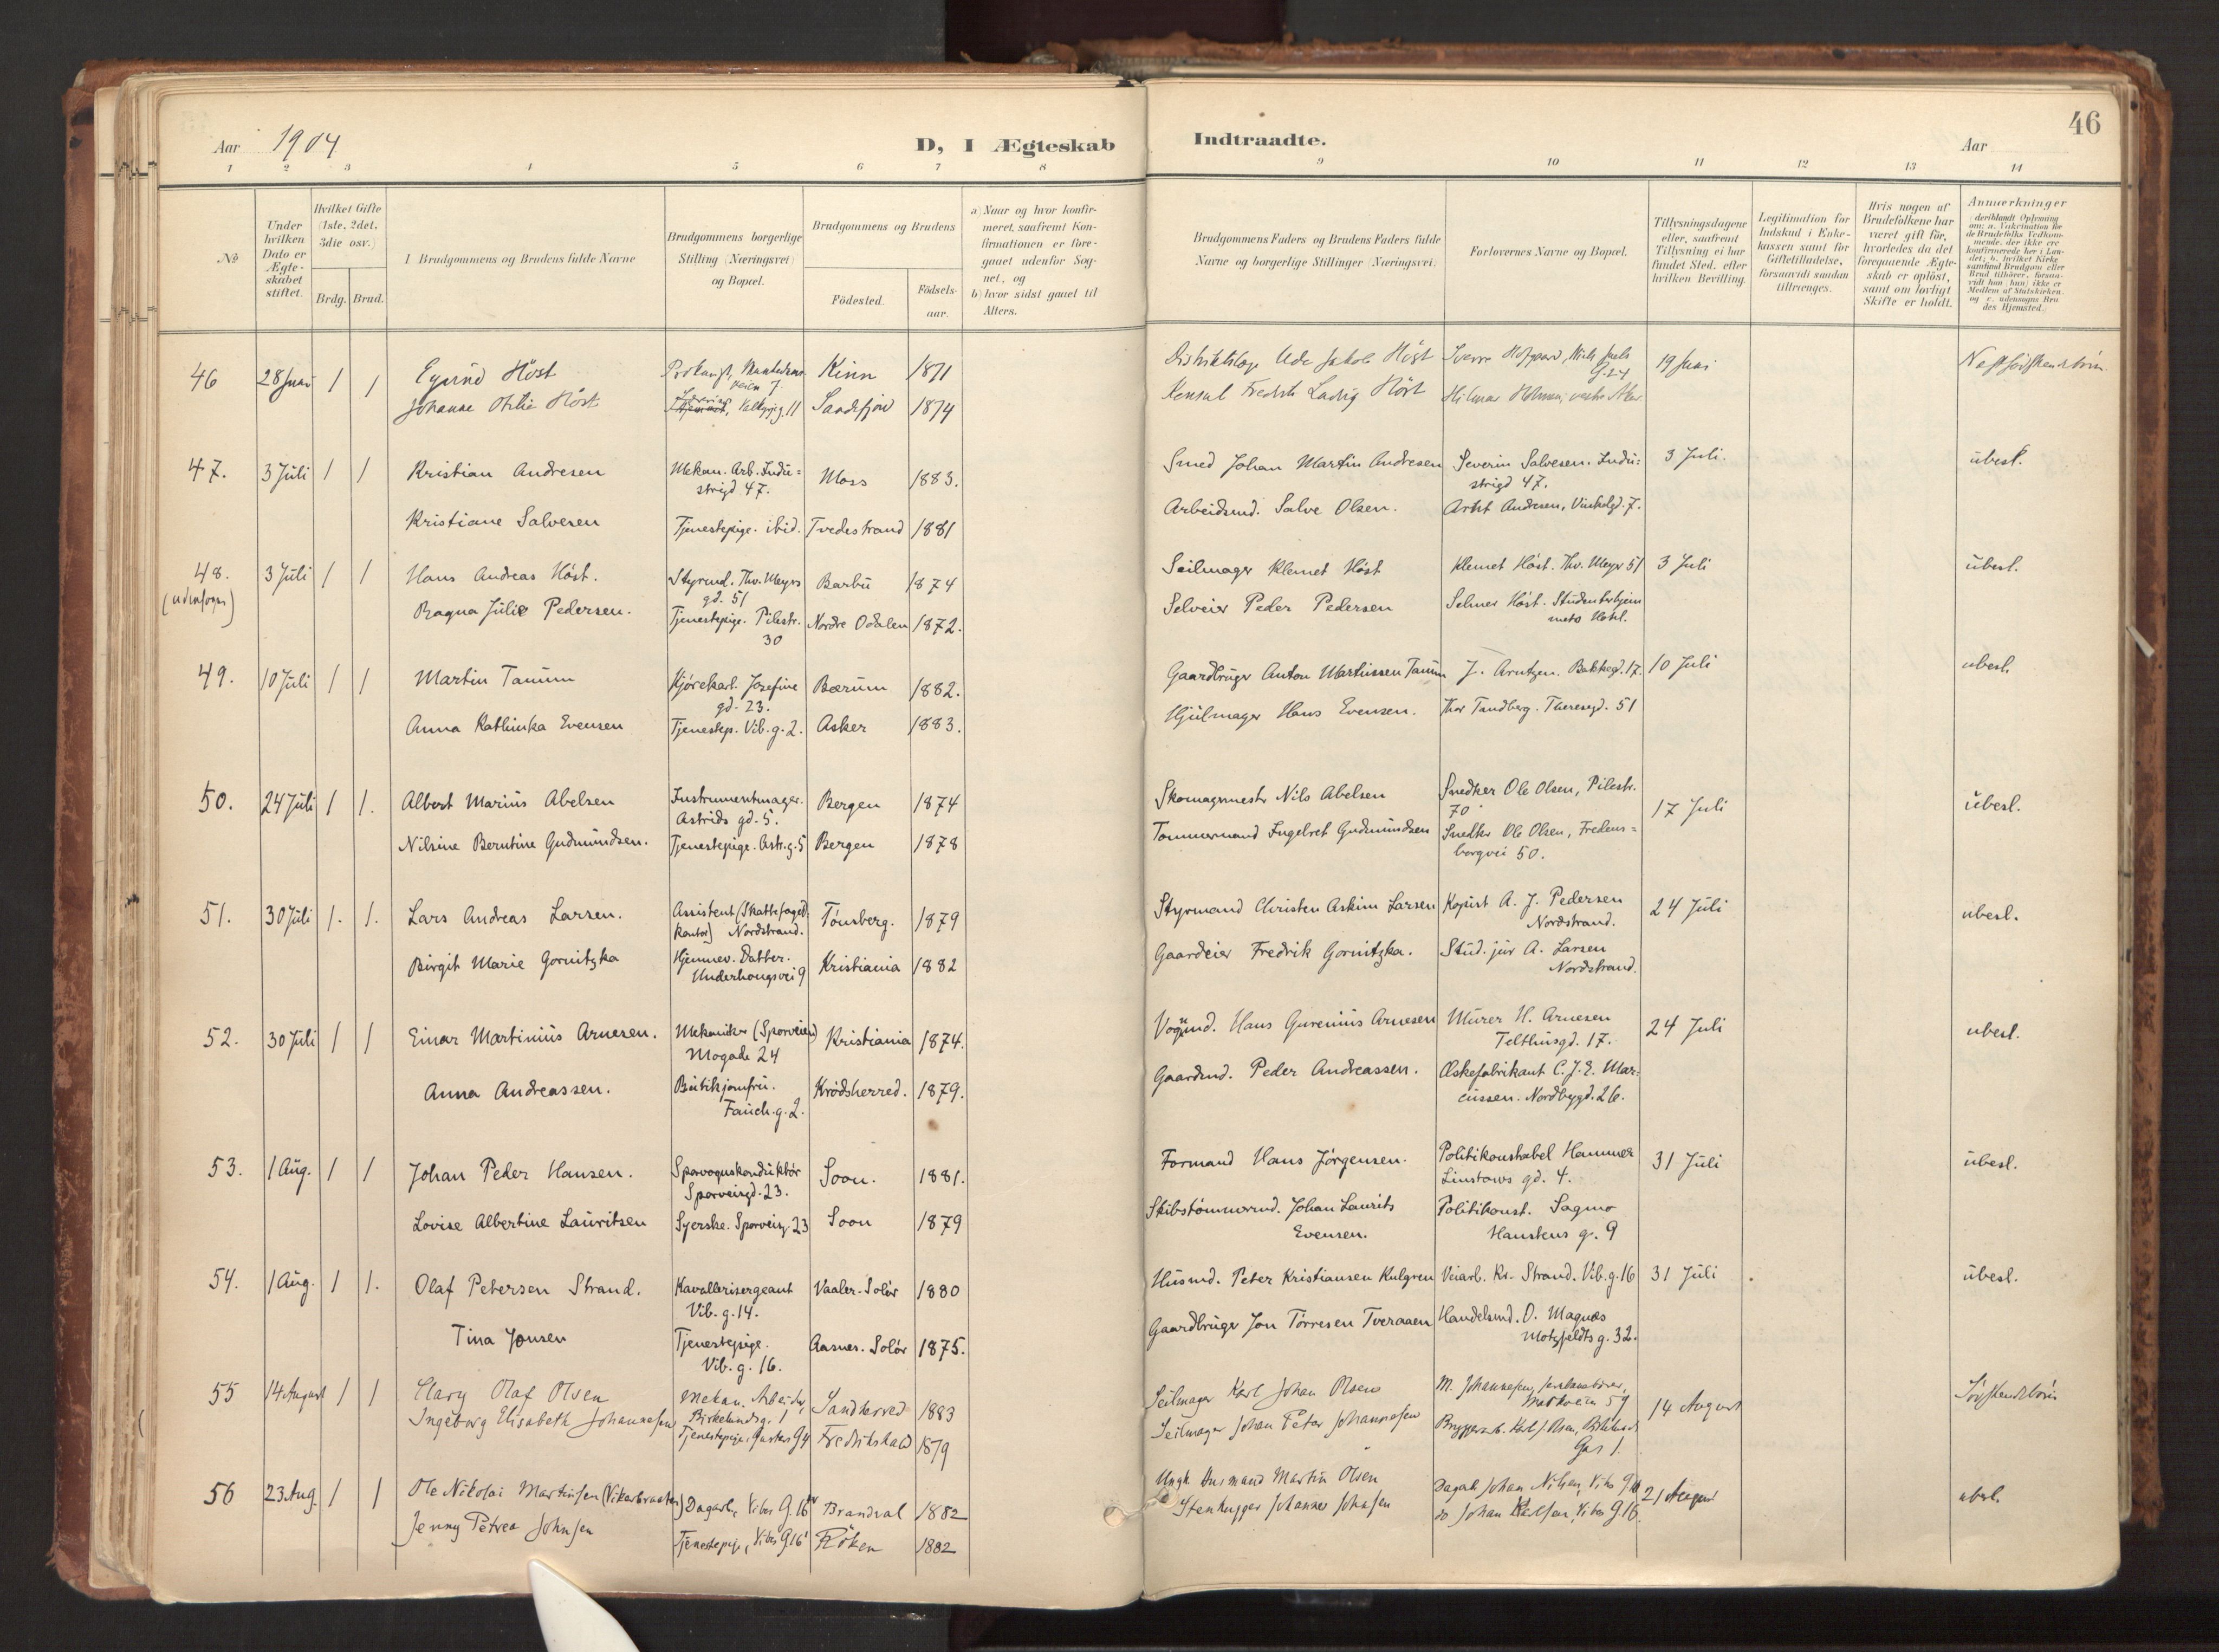 46
Aar 1904
D, I Ægteskab Indtraadte.
Aar
1 2 3 4 5 6 7 8 9 10 11 12 13 14
No
Under hvilken Dato er Ægteskabet stiftet.
Hvilket Gifte (1ste, 2det, 3die osv.)
Brdg. Brud.
Brudgommens og Brudens fulde Navne
Brudgommens borgerlige Stilling (Næringsvei) og Bopæl.
Brudgommens og Brudens
Födested. Födselsaar.
a) Naar og hvor konfirmeret, saafremt Konfirmationen er foregaaet udenfor Sognet, og
b) hvor sidst gaaet til Alters.
Brudgommens Faders og Brudens Faders fulde Navne og borgerlige Stillinger (Næringsvei)
Forlovernes Navne og Bopæl.
Tillysningsdagene eller, saafremt Tillysning ei har fundet Sted, efter hvilken Bevilling.
Legitimation for Indskud i Enkekassen samt for Giftetilladelse, forsaavidt saadan tiltrænges.
Hvis nogen af Brudefolkene har været gift för, hvorledes da det foregaaende Ægteskab er oplöst, samt om lovligt Skifte er holdt.
Anmærkninger
46 28 Juni 1 1 Eyvind Höst Kinn 1871 Jakob Höst 19 Juni
Johanne Otilie Höst Sandefjord 1874 Konsul Fredrik Ludvig Höst
47. 3 Juli 1 1 Kristian Andresen Mekan. Arb. Indu= strigd 47. Moss 1883. Smed Johan Martin Andresen Severin Salvesen. Indu: strigd 47. 3 Juli. ubesl.
Kristiane Salvesen Tjenestepige. ibid. Tvedestrand 1881 Arbeidsmd. Salve Olsen. Andresen,
48. (udensogns) 3 Juli 1 1 Hans Andreas Höst. Styrmd. Thv. Meyers gd. 51 Barbu 1874 Seilmager Klemet Höst Klemet Höst. Thv. Meyer 51 3 Juli ubesl.
Ragna Julie Pedersen. Tjenestepige. Pilestr. 30 Nordre Odalen 1872. Selveier Peder Pedersen Selmer Höst. Studenterhjem mets Hotel.
49. 10 Juli 1 1 Martin Tanum Kjörekarl. Josefine gd. 23. Bærum 1882. Gaardbruger Anton Martinssen Tanum J. Arntzen. Bakkegd. 17. 10 Juli ubesl.
Anna Kathinka Evensen Tjenestep. Vib. g. 2. Asker 1883. Hjulmager Hans Evensen. Thor Tandberg. Theresegd. 51
50. 24 Juli 1 1. Albert Marius Abelsen Instrumentmager. Astrids gd. 5. Bergen 1874 Skomagermester Nils Abelsen Snedker Ole Olsen, Pilestr. 70 17 Juli ubesl.
Nilsine Berntine Gudmundsen. Tjenestepige. Astr. g. 5 Bergen 1878 Tömmermand Ingebret Gudmundsen Snedker Ole Olsen, Fredens= borgvei 50.
51. 30 Juli 1. 1. Lars Andreas Larsen. Assistent (Skattefoged kontor) Nordstrand. Tönsberg. 1879 Styrmand Christen Askim Larsen Kopist A. J. Pedersen Nordstrand. 24 Juli ubesl.
Birgit Marie Gornitzka Hjemmev. Datter. Underhaugsvei 9 Kristiania 1882 Gaardeier Fredrik Gornitzka. Stud. jur A. Larsen Nordstrand.
52. 30 Juli 1 1 Einar Martinius Arnesen. Mekaniker (Sporveien) Mogade 24 Kristiania 1874. Vogmd. Hans Gurenius Arnesen Murer H. Arnesen Telthusgd. 17. 24 Juli ubesl.
Anna Andreassen. Butikjomfru. Fauch. g. 2. Krödsherred. 1879. Gaardmd. Peder Andreassen. Æskefabrikant C. J. E. Mar: cussen. Nordbygd. 26.
53. 1 Aug. 1 1 Johan Peder Hansen. Sporvognskonduktör Sporveisgd. 23. Soon. 1881. Formand Hans Jörgensen. Politikonstabel Hammer Linstows gd. 4. 31 Juli ubesl.
Lovise Albertine Lauritsen Syerske. Sporveisg. 23 Soon 1879 Skibstömmermd. Johan Laurits Evensen. Politikonst. Sagmo Haustens g. 9
54. 1 Aug. 1 1. Olaf Petersen Strand. Kavallerisergeant Vib. g. 14. Vaaler. Solör 1880 Husmd. Peter Kristiansen Kulgren Veiarb. Kr. Strand. Vib. g. 16 31 Juli ubesl.
Tina Jonsen Tjenestepige. Vib. g. 16. Aasnes. Solör 1875. Gaardbruger Jon Törresen Tveraaen Handelsmd. O. Magnæs Motzfeldts g. 32.
55 14 August 1 1 Clary Olaf Olsen Mekan. Arbeider, Birkelundsg. 1 Sandherred 1883 Seilmager Karl Johan Olsen M. Johannesen, Markvein 59 14 August Söskendebörn
Ingeborg Elisabeth Johannesen Tjenestepige, Fredrikshald 1879 Seilmager Johan Peter Johannesen
56 23 Aug. 1 1 Ole Nikolai Martinsen Dagarb., Vibes G. 16 Brandval 1882 Martin Olsen Dagarb. Johan Nilsen, 21 August ubesl.
Jenny Petrea Johnsen Tjenestepige, Vibes G 16 Röken 1882 Stenhugger Johannes Johnsen do Johan Karlsen, Vibes G. 16.